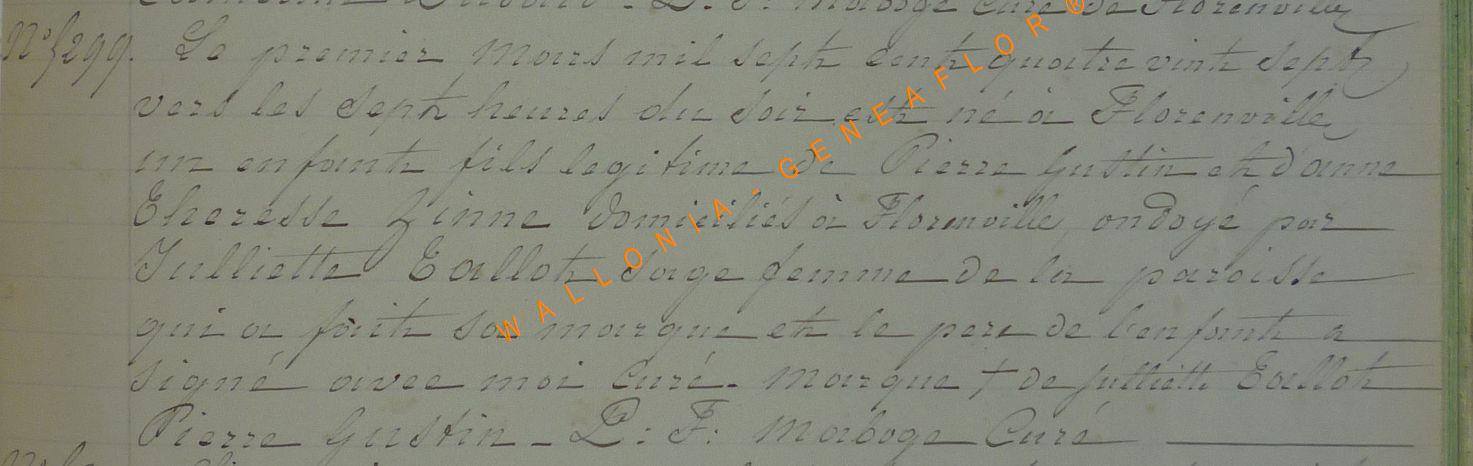 L: F: Maboge Curé de Florenville
N° 299. Le premier Mars mil sept cent quatre vint sept
vers les sept heures du soir est né à Florenville
un enfant fils legitime de Pierre Gustin et d'anne
Theresse Zinne domiciliés à Florenville, ondoyé par
Julliette Tallot sage femme de la paroisse
qui a fait sa marque et le pere de l'enfant a
signé avec moi Curé. Marque + de Julliette Tallot
Pierre Gustin - L: F: Maboge Curé
WALLONIA - GENEAFLOR ®